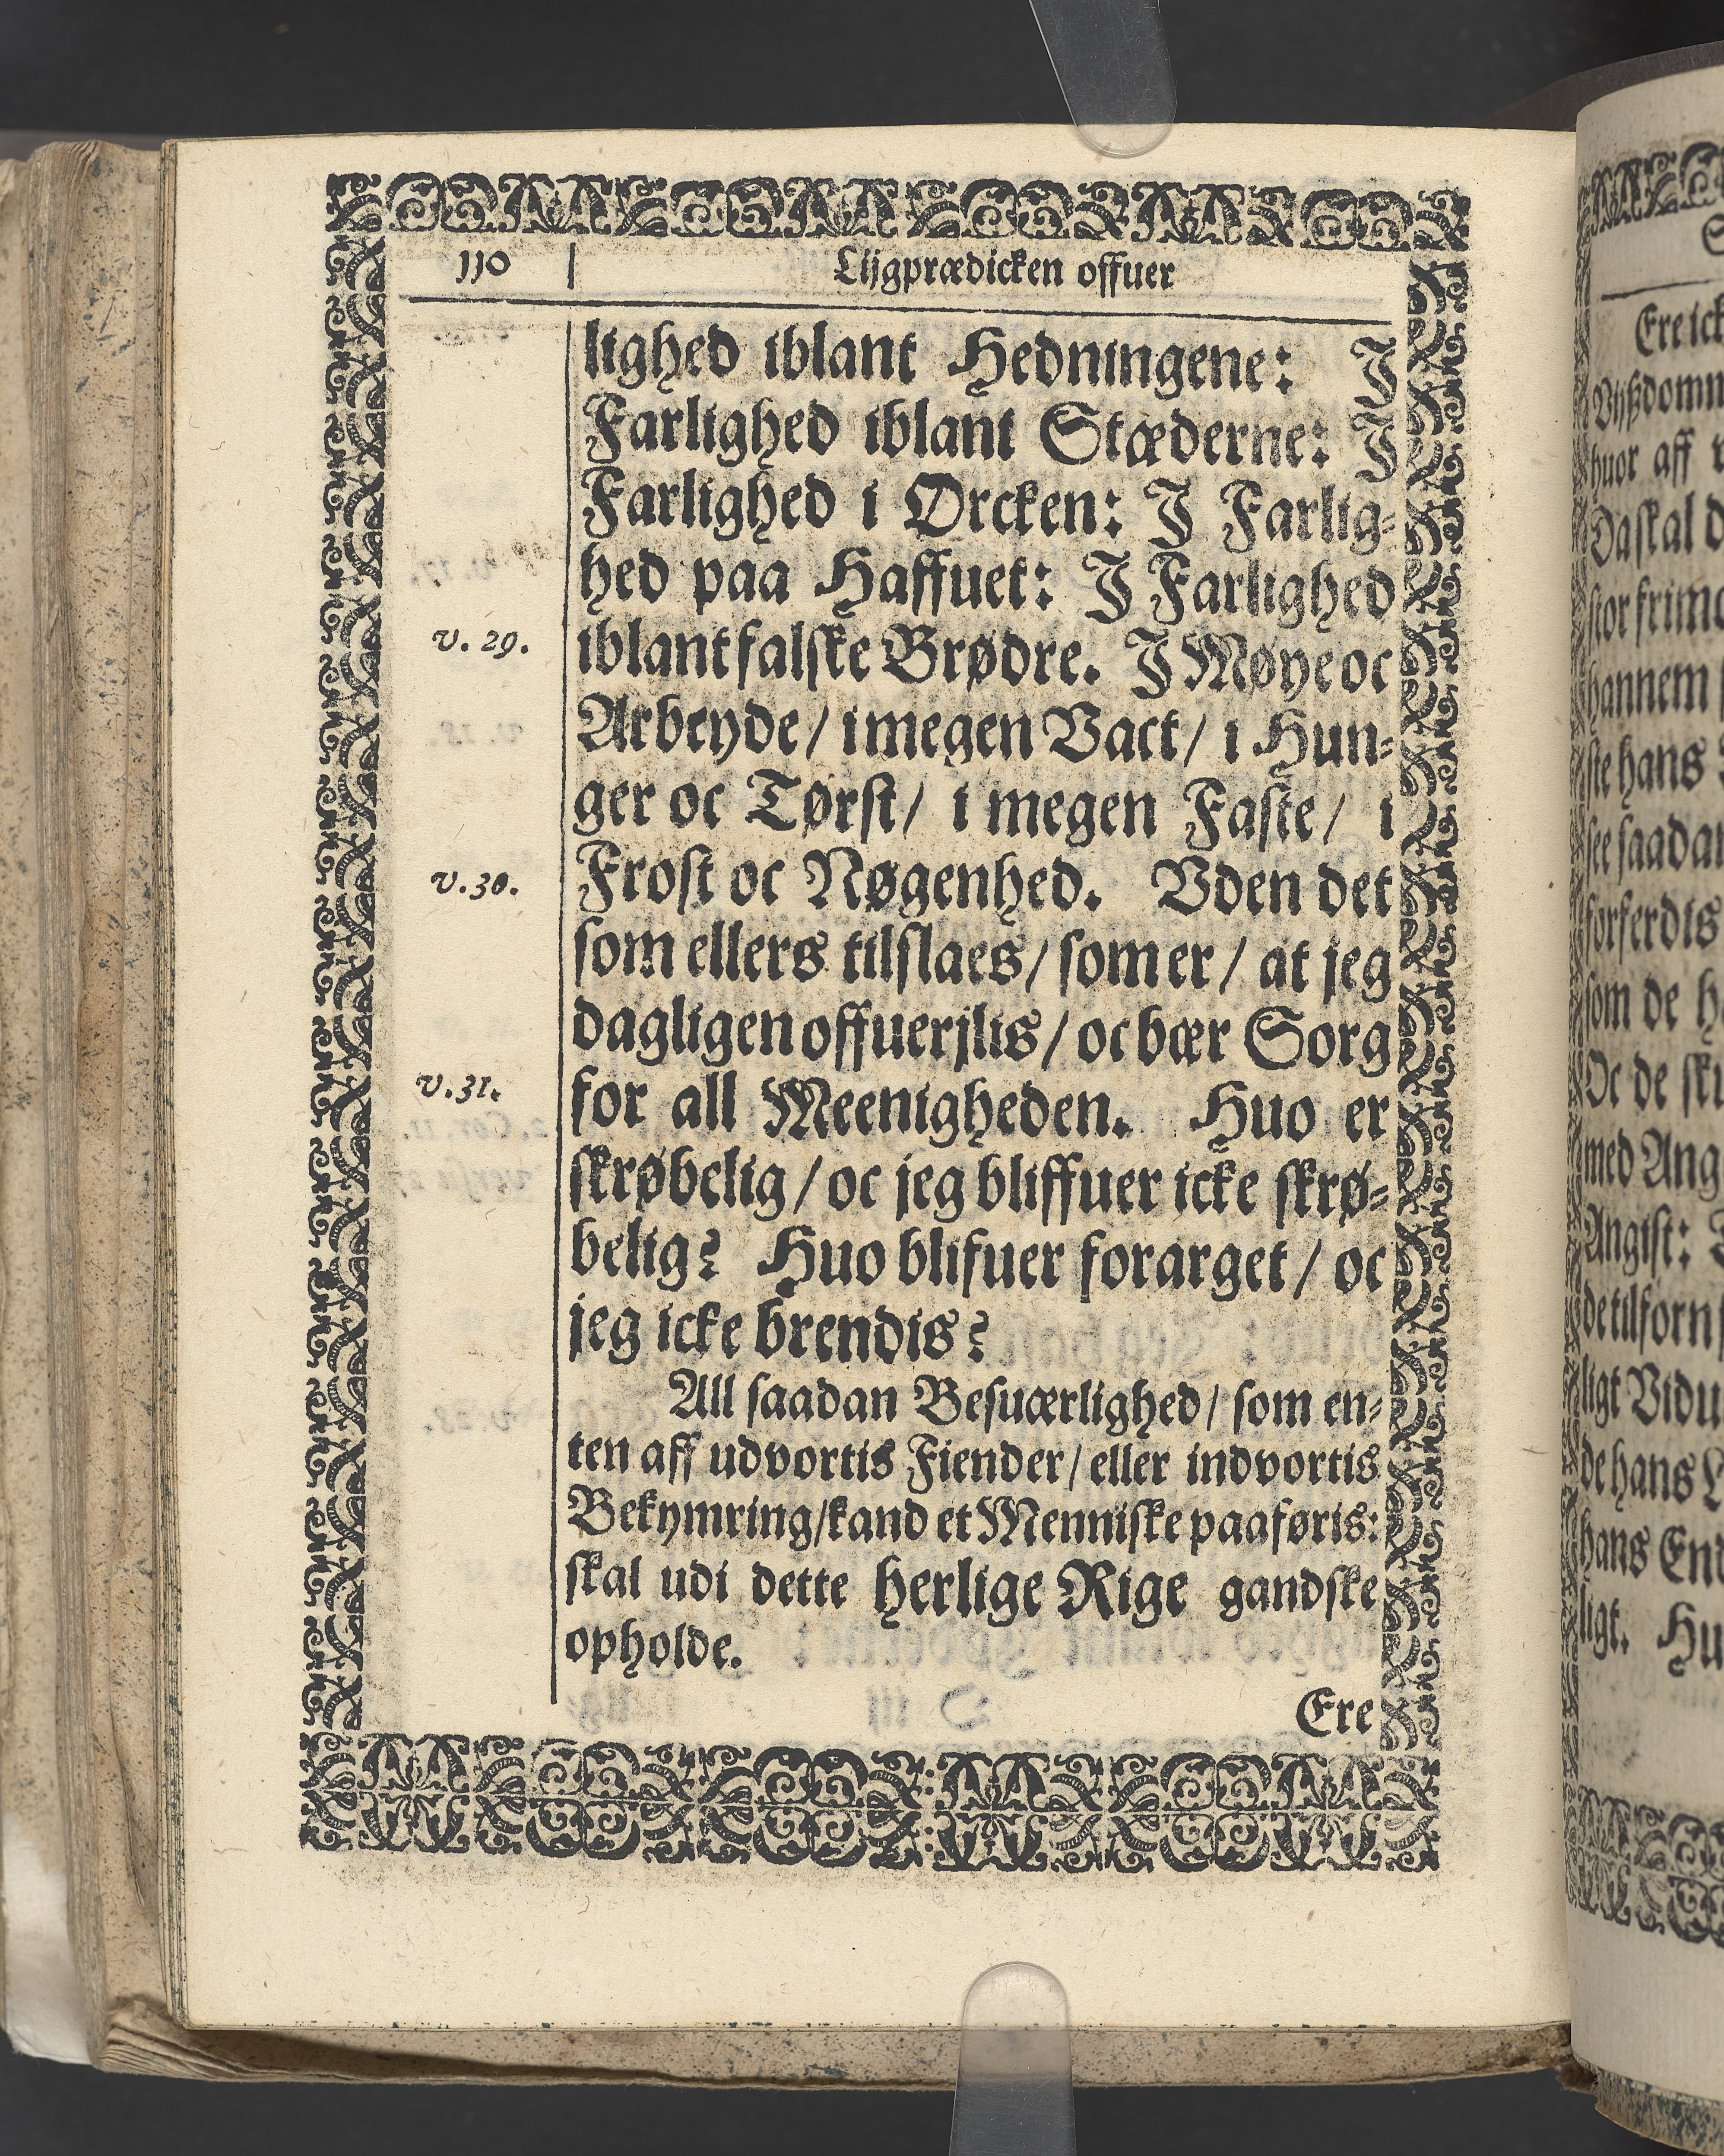 110 Lijgprædicken offuer
lighed iblant Hedningene: J
Farlighed iblant Stæderne: J
Farlighed i Ørcken: J Farlig-
hed paa Haffuet: J Farlighed
v. 29. iblant falske Brødre. J Møye oc
Arbeyde/ i megen Vact/ i Hun-
ger oc Tørst/ i megen Faste/ i
v. 30. Frost oc Nøgenhed. Vden det
som ellers tilslaes/ som er/ at jeg
dagligen offuerjlis/ oc bær Sorg
v. 31. for all Meenigheden. Huo er
skrøbelig/ oc jeg bliffuer icke skrø-
belig? Huo blifuer forarget/ oc
jeg icke brendis?
All saadan Besuærlighed/ som en-
ten aff udvortis Fiender/ eller indvortis
Bekymring/ kand et Menniske paaføris:
skal udi dette herlige Rige gandske
opholde.
Ere
Ere ick
huor aff
Da skal d
hannem
ste hans
som de h
Oc de sk
med Ang
Angist:
de hans
hans End
ligt. Hu